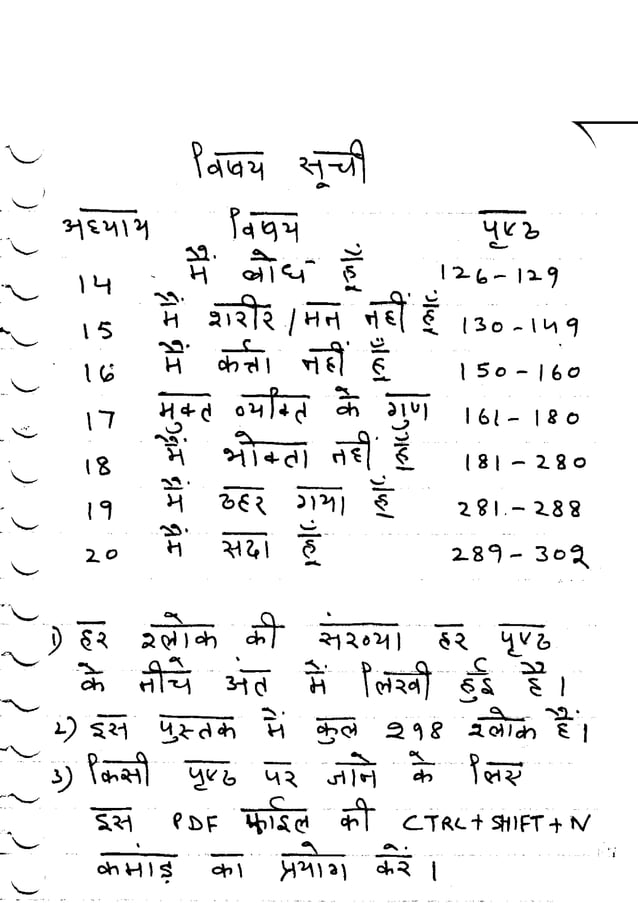 विषय सूची
अध्याय विषय पृष्ठ
14 मैं बोध हूँ 126-129
15 मैं शरीर/मन नहीं हूँ 130-149
16 मैं कर्त्ता नहीं हूँ 150-160
17 मुक्त व्यक्ति के गुण 161-180
18 मैं भोक्ता नहीं हूँ 181-280
19 मैं ठहर गया हूँ 281-288
20 मैं सदा हूँ 289-302
1) हर श्लोक की संख्या हर पृष्ठ
के नीचे अंत में लिखी हुई है।
2) इस पुस्तक में कुल 298 श्लोक हैं।
3) किसी पृष्ठ पर जाने के लिए
इस PDF फाईल की CTRL+SHIFT+N
कमांड का प्रयोग करें।